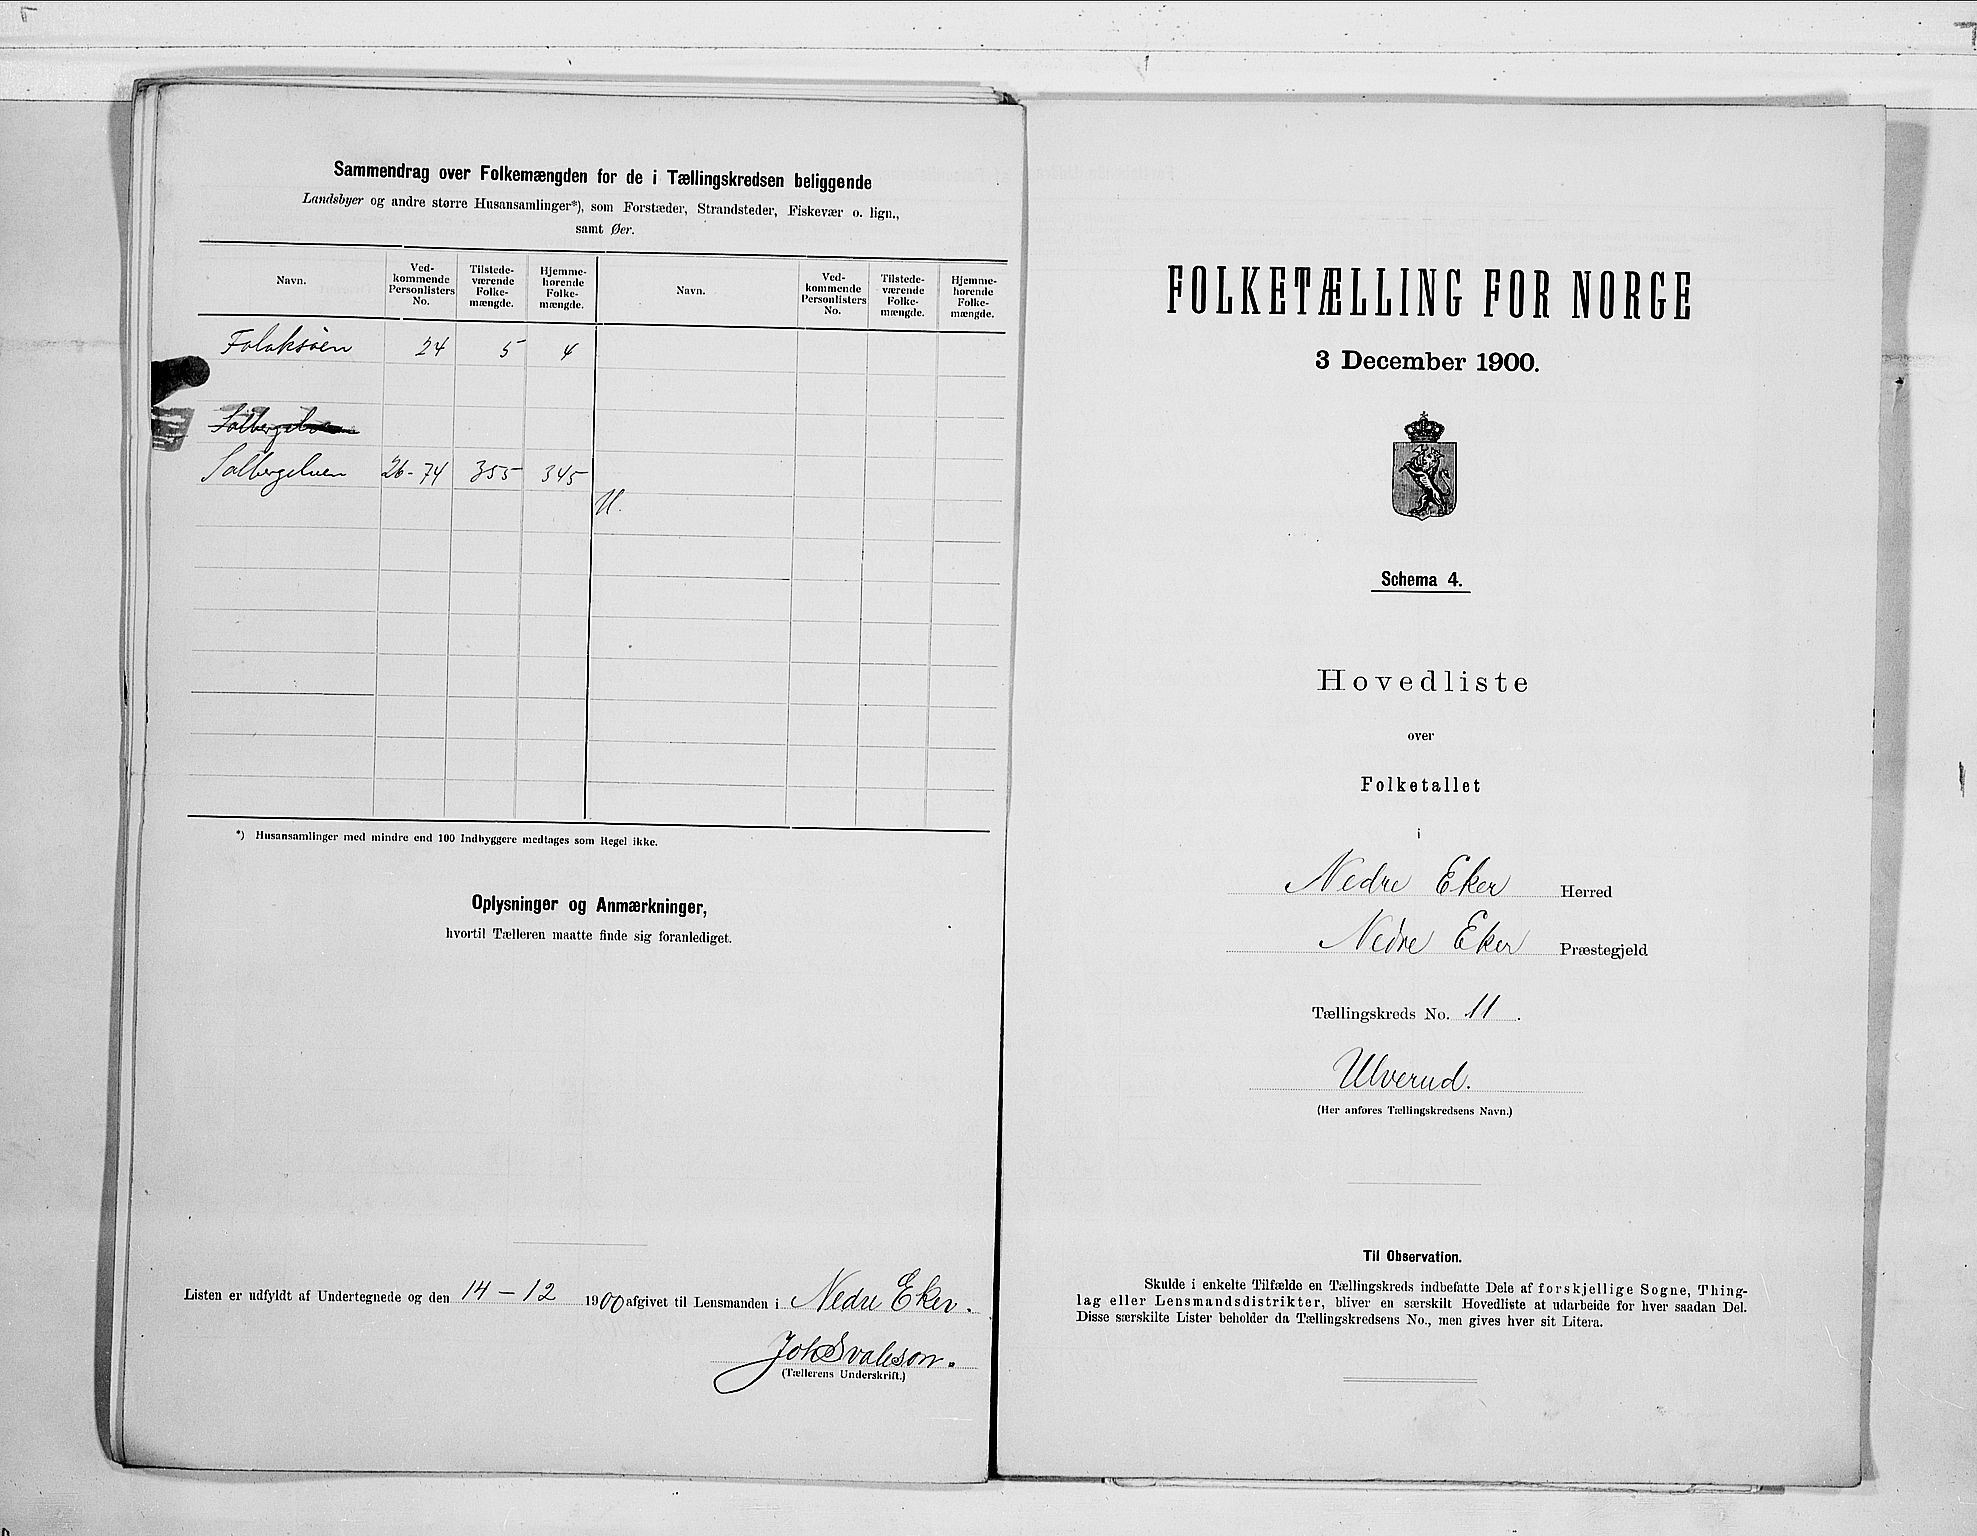 Sammendrag over Folkemængden for de i Tællingskredsen beliggende
Landsbyer og andre større Husansamlinger*), som Forstæder, Strandsteder, Fiskevær o. lign.,
samt Øer.
Navn.
Ved-
kommende
Personlisters
No.
Tilstede-
værende
Folke-
mængde.
Hjemme-
hørende
Folke-
mængde.
Navn.
Ved-
kommende
Personlisters
No.
Tilstede-
værende
Folke-
mængde.
Hjemme-
hørende
Folke-
mængde.
24 5 4
Solbergelven
Solbergelven 26-74 355 345
*) Husansamlinger med mindre end 100 Indbyggere medtages som Regel ikke.
Oplysninger og Anmærkninger,
hvortil Tælleren maatte finde sig foranlediget.
Listen er udfyldt af Undertegnede og den 14-12 1900 afgivet til Lensmanden i Nedre Eker.
(Tællerens Underskrift.)
FOLKETÆLLING FOR NORGE
3 December 1900.
Schema 4.
Hovedliste
over
Folketallet
i
Nedre Eker Herred
Nedre Eker Præstegjeld
Tællingskreds No. 11.
Ulverud.
(Her anføres Tællingskredsens Navn.)
Til Observation.
Skulde i enkelte Tilfælde en Tællingskreds indbefatte Dele af forskjellige Sogne, Thing-
lag eller Lensmandsdistrikter, bliver en særskilt Hovedliste at udarbeide for hver saadan Del.
Disse særskilte Lister beholder da Tællingskredsens No., men gives hver sit Litera.